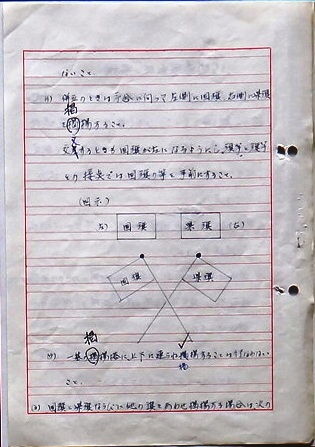 ないこと。
(ハ) 併立のときは予め向って左側に国旗 右側に県旗
を掲揚すること。
交叉するときも国旗が左になるようにし、旗竿と旗竿
との接点では国旗の竿を手前にすること。
(図示)
(左) 国旗 県旗 (右)
国旗 県旗
(ニ) 一基の掲揚塔に上下に連ね掲揚することは行なわない
こと。
国旗と県旗ならびに他の旗をあわせ掲揚する場合は次の